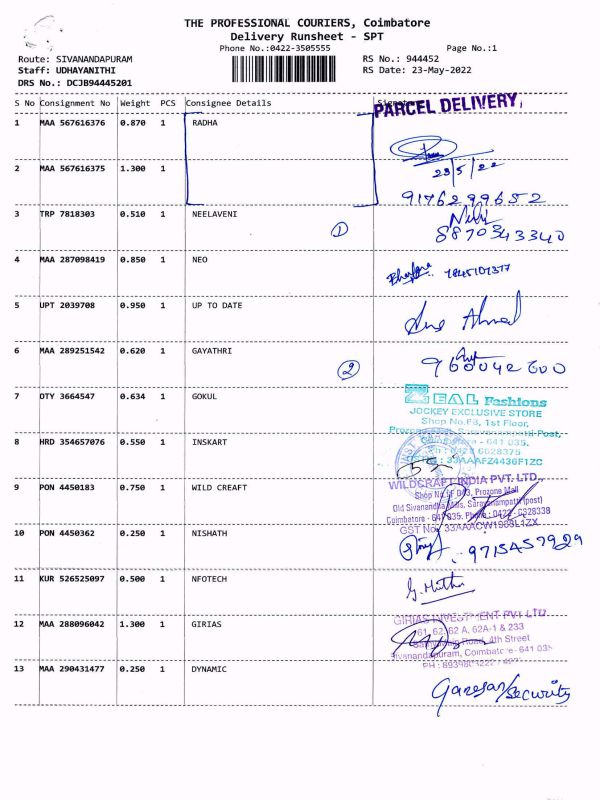 THE PROFESSIONAL COURIERS, Coimbatore
Delivery Runsheet - SPT
Phone No.:0422-3505555 Page No.:1
Route: SIVANANDAPURAM RS No.: 944452
Staff: UDHAYANITHI RS Date: 23-May-2022
DRS No.: DCJB94445201
S No Consignment No Weight PCS Consignee Details
PARCEL DELIVERY,
1 MAA 567616376 0.870 1 RADHA
2 MAA 567616375 1.300 1
23/5/22
9176299652
3 TRP 7818303 0.510 1 NEELAVENI
1 8870343340
4 MAA 287098419 0.850 1 NEO
5 UPT 2039708 0.950 1 UP TO DATE
6 MAA 289251542 0.620 1 GAYATHRI
2
7 OTY 3664547 0.634 1 GOKUL
ZEAL Fashions
JOCKEY EXCLUSIVE STORE
Shop No.F8, 1st Floor,
8 HRD 354657076 0.550 1 INSKART
Coimbatore - 641 035.
33AAAFZ4436F1ZC
9 PON 4450183 0.750 1 WILD CREAFT
WILDCRAFT INDIA PVT. LTD.,
Prozone Mall
Old Sivanandha Mills, Saravanampatti (post)
Coimbatore - 641 035.
10 PON 4450362 0.250 1 NISHATH
11 KUR 526525097 0.500 1 NFOTECH
G. Muthu
12 MAA 288096042 1.300 1 GIRIAS
GIRIAS INVESTMENT PVT LTD
61, 62, 62 A, 62A-1 & 233
Road, 4th Street
Sivanandapuram, Coimbatore - 641 035
13 MAA 290431477 0.250 1 DYNAMIC
Ganesan/Security